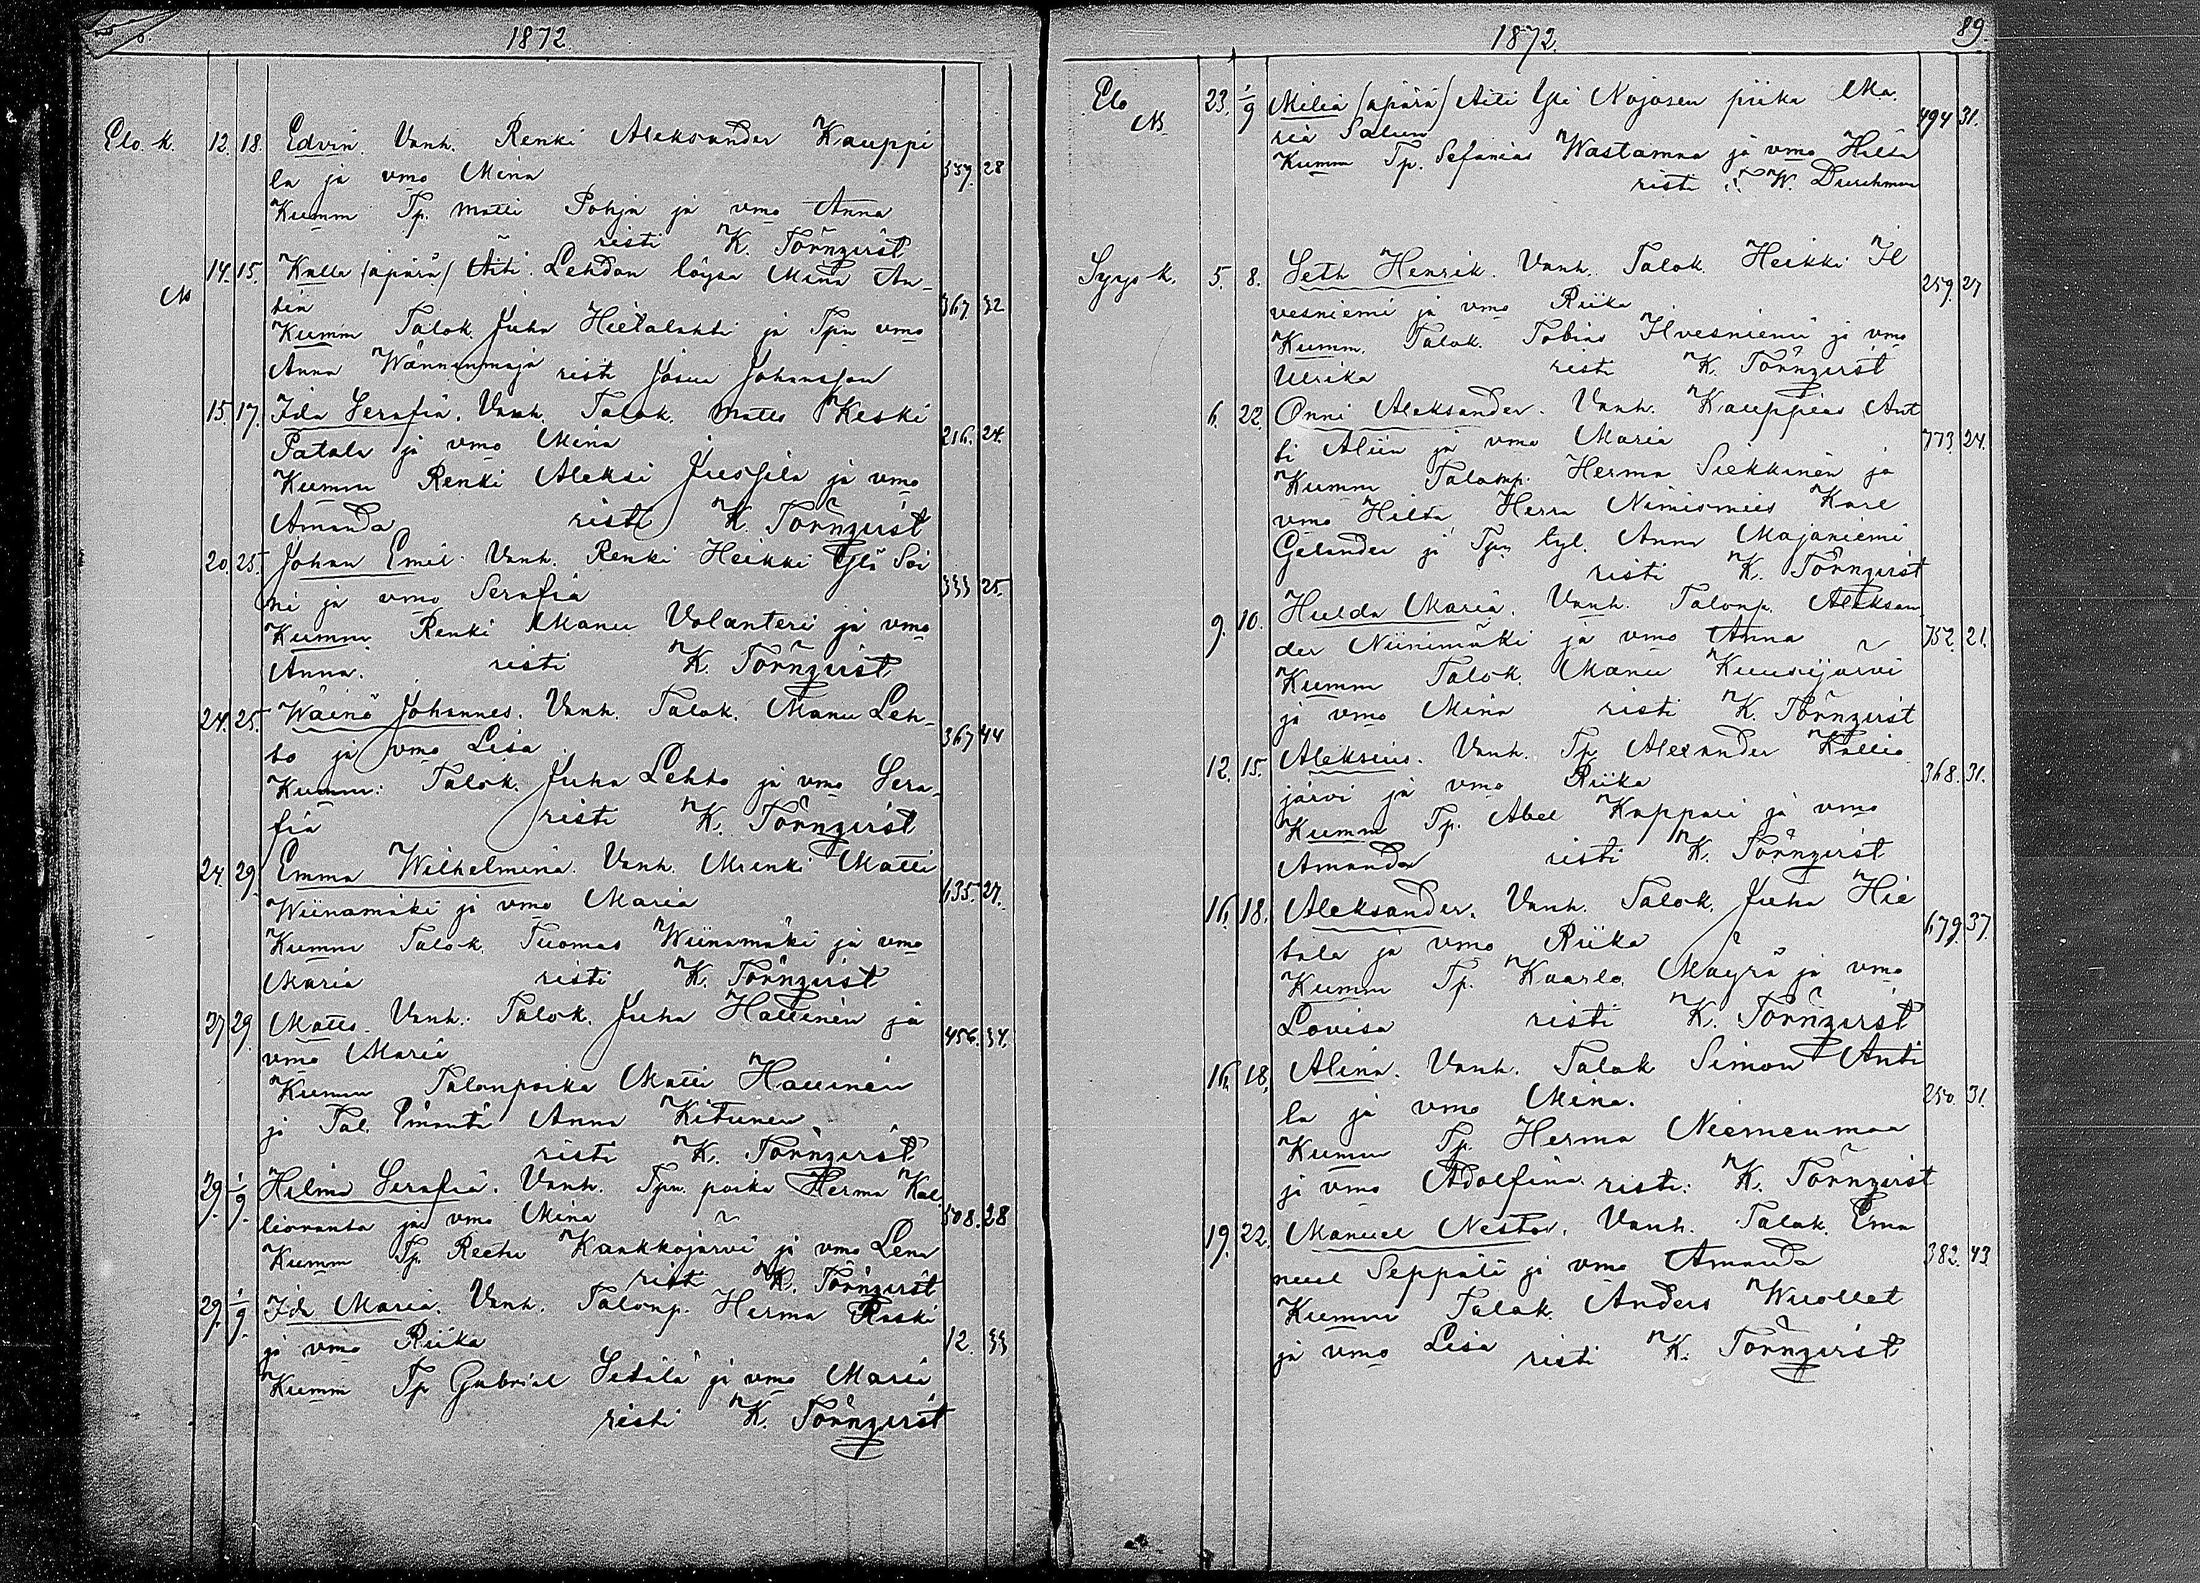 1872
Elo k. 12. 18. Edvin. Vanh. Renki Aleksander Kauppi
la ja vmo Mina 559. 28
Kumm Tp. Matti Pohja ja vmo Anna
risti K. Törnqvist
14. 15. Kalle (äpärä) Äiti Lehdon löysä Mina An-
tin 367 32
Kumm Talok. Juha Hietalahti ja Tpn vmo
Anna Wännenmaja risti Josua Johansson
15. 17. Ida Serafia. Vanh. Talok. Matts Keski
Patala ja vmo Mina 216. 24.
Kumm Renki Aleksi Jussila ja vmo
Amanda risti K. Törnqvist
20. 25. Johan Emil. Vanh. Renki Heikki Ylä Soi
ni ja vmo Serafia 333 25.
Kumm Renki Manu Volanteri ja vmo
Anna. risti K. Törnqvist
24. 25. Wäinö Johannes. Vanh. Talok. Manu Leh-
to ja vmo Lisa 367 44
Kumm: Talok. Juha Lehto ja vmo Sera-
fia risti K. Törnqvist
24. 29. Emma Wilhelmina. Vanh. Mrenki Matti
Wiinamäki ja vmo Maria 635. 27.
Kumm Talok. Tuomas Wiinamäki ja vmo
Maria risti K. Törnqvist
27 29. Matts. Vanh. Talok. Juha Hautinen ja
vmo Maria 456. 34.
Kumm Talonpoika Matti Hautinen
ja Tal. Emäntä Anna Kitunen
risti K. Törnqvist
29. 1/9. Hilma Serafia. Vanh. Tpn. poika Herma Kal
lioranta ja vmo Mina 508. 28
Kumm Tp. Reetu Kaukkojärvi ja vmo Lena
risti K. Törnqvist
29. 1/9. Ida Maria. Vanh. Talonp. Herma Raski
ja vmo Riika 12. 33
Kumm Tp Gabriel Setälä ja vmo Maria
risti K. Törnqvist
1872. 89.
Elo 23. 1/9 Milia (äpärä) Äiti Yli Nojosen piika Ma
ria Salun 494 31.
Kumm Tp. Sefanias Wastamaa ja vmo Hilda
risti W. Durchman
Syys k. 5. 8. Seth Henrik. Vanh. Talok. Heikki Il
vesniemi ja vmo Riika 259. 27
Kumm. Talok. Tobias Ilvesniemi ja vmo
Ulrika risti K. Törnqvist
6. 22. Onni Aleksander. Vanh. Kauppias Ant
ti Aliin ja vmo Maria 773. 24.
Kumm Talonp. Herma Siekkinen ja
vmo Hilda, Herra Nimismies Karl
Gelander ja Tpn tyt. Anna Majaniemi
risti K. Törnqvist
9. 10. Hulda Maria. Vanh. Talonp. Aleksan
der Niinimäki ja vmo Anna 752. 21.
Kumm Talok. Manu Kuusijärvi
ja vmo Mina risti K. Törnqvist
12. 15. Aleksius. Vanh. Tp Alexander Kallio
järvi ja vmo Riika 368. 31.
Kumm Tp. Abel Kappali ja vmo
Amanda risti K. Törnqvist
16. 18. Aleksander. Vanh. Talok. Juha Hie
tala ja vmo Riika 679. 37.
Kumm Tp. Kaarlo Mäyrä ja vmo
Lovisa risti K. Törnqvist
16. 18. Alina. Vanh. Talok Simon Anti
la ja vmo Mina. 250. 31.
Kumm Tp. Herma Niemenmaa
ja vmo Adolfina risti: K. Törnqvist
19. 22. Manuel Nestor. Vanh. Talok. Ema
nuel Seppälä ja vmo Amanda 382. 43
Kumm Talok. Anders Wuollet
ja vmo Lisa risti K. Törnqvist